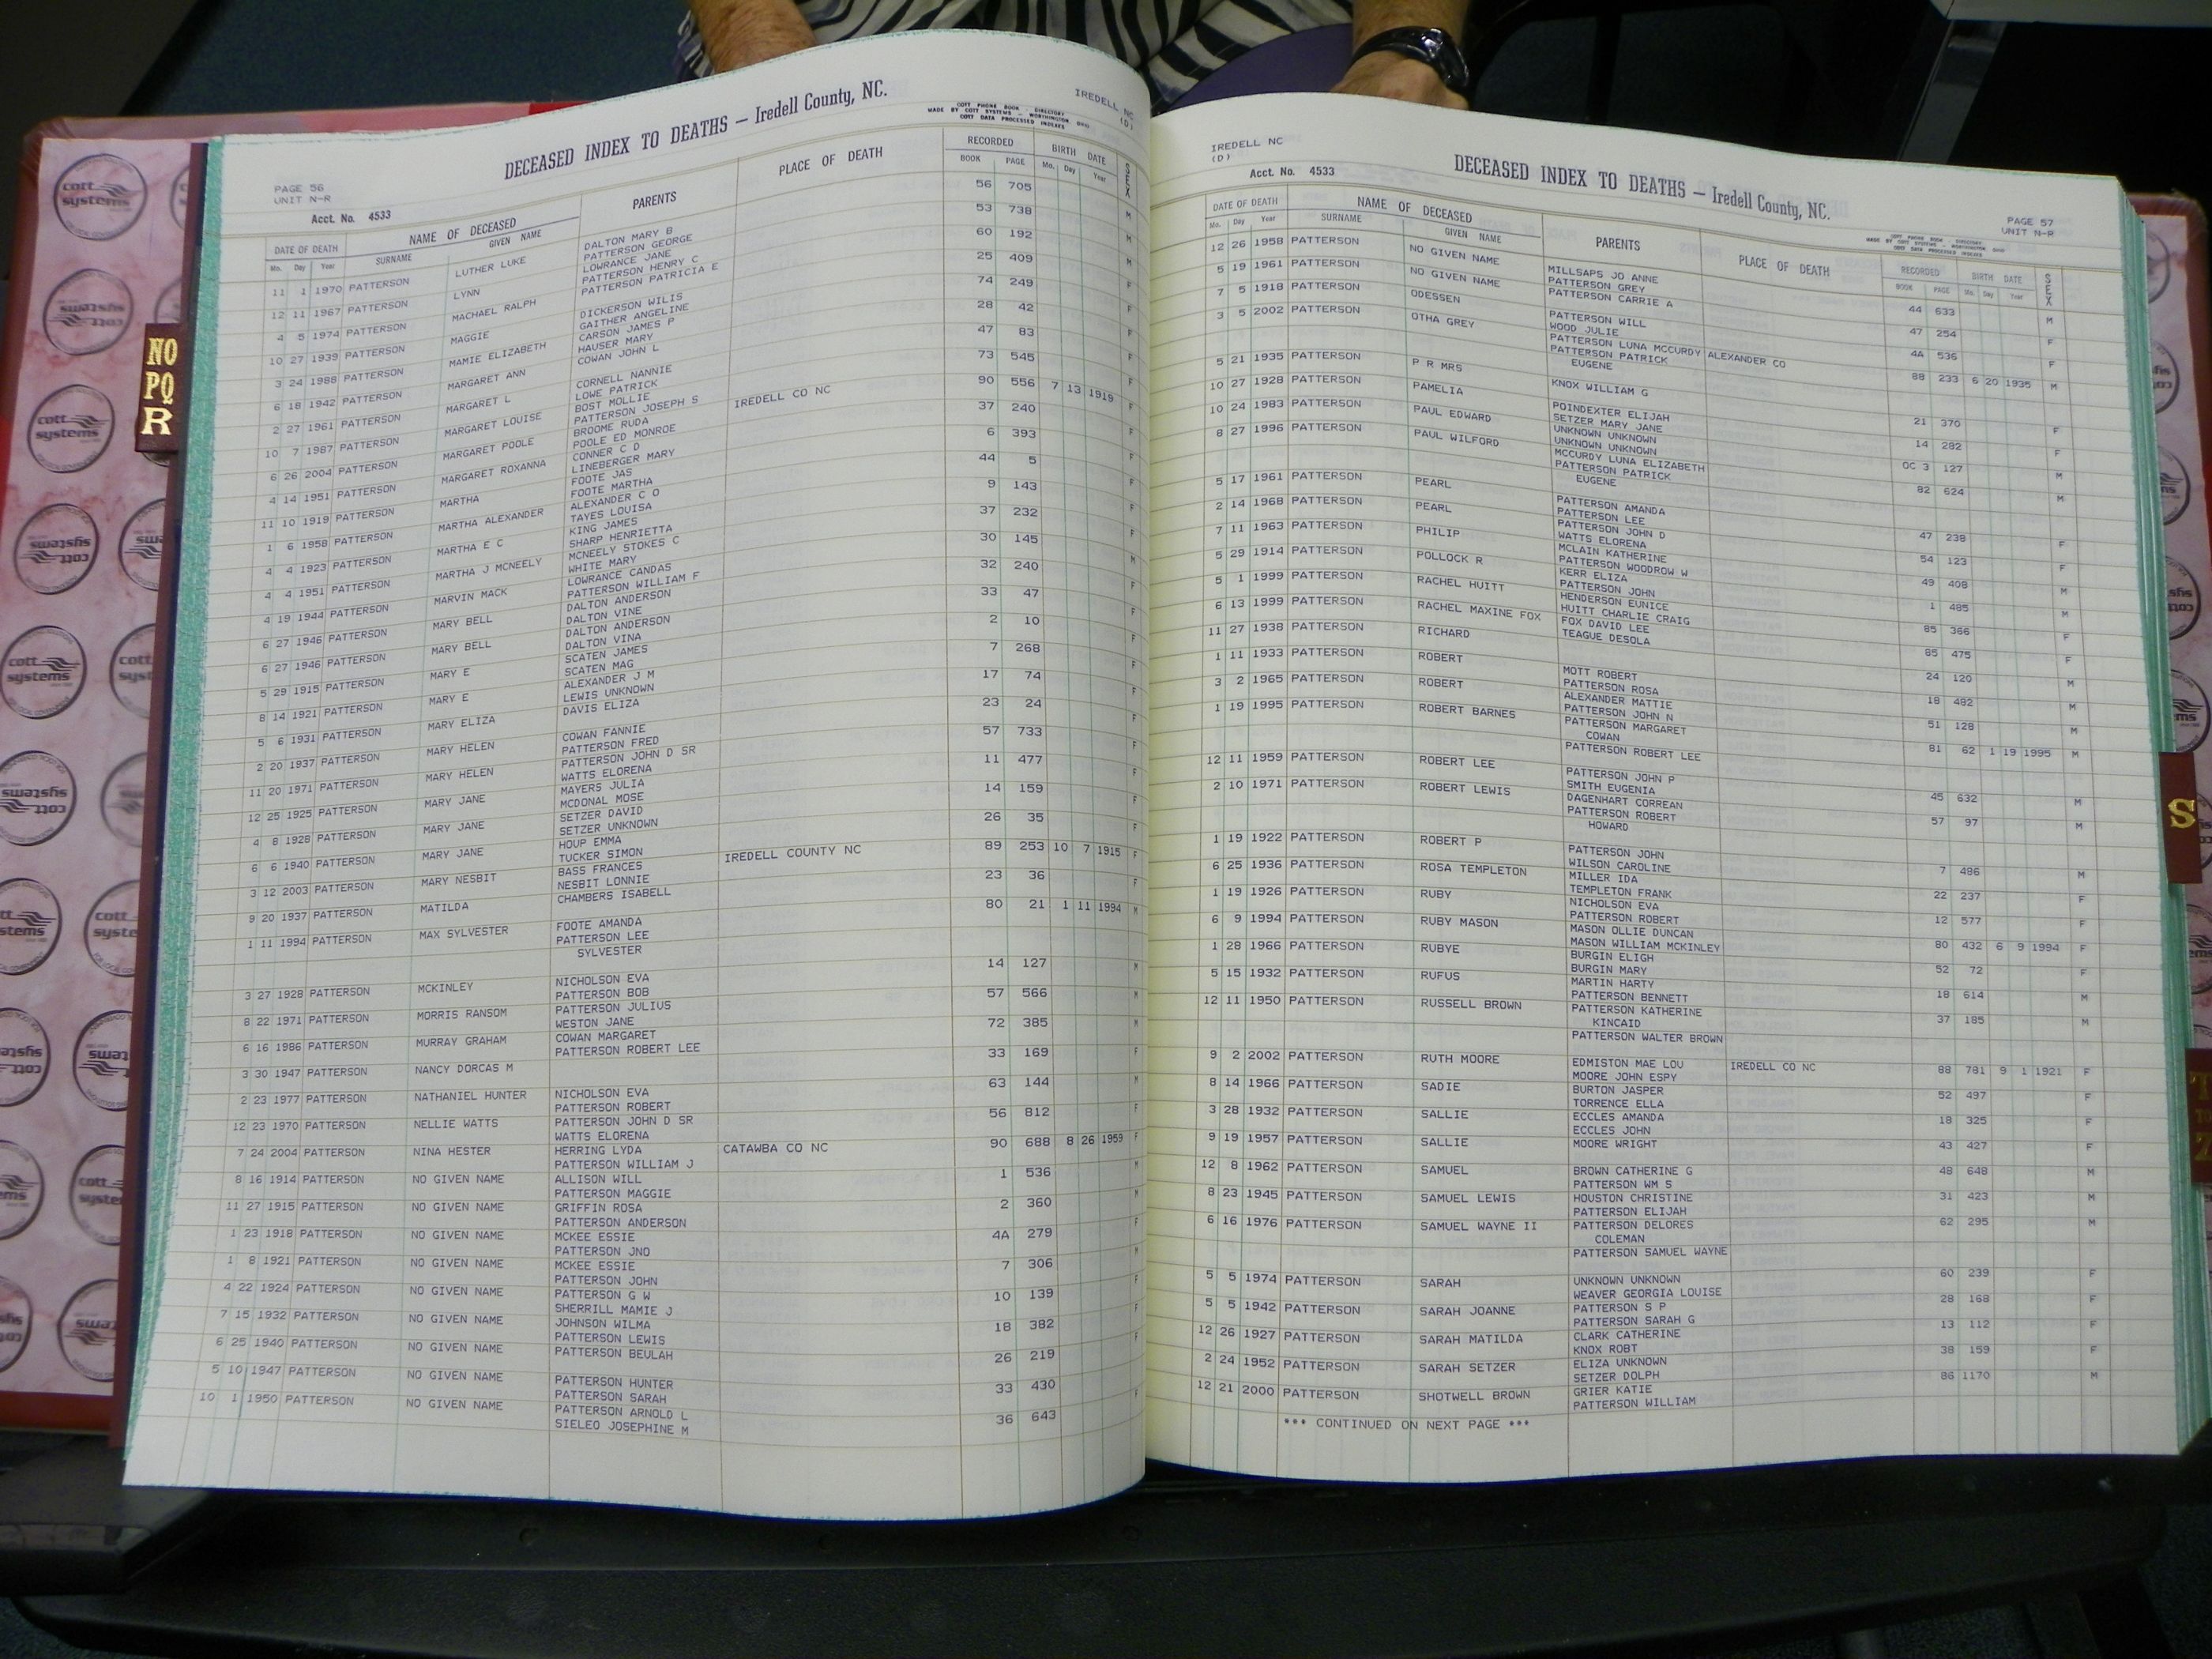 DECEASED INDEX TO DEATHS — Iredell County, NC.
COTT PHONE BOOK - DIRECTORY
MADE BY COTT SYSTEMS - WORTHINGTON OHIO
COTT DATA PROCESSED INDEXES
IREDELL NC
(D)
PAGE 56
UNIT N-R
Acct. No. 4533
DATE OF DEATH NAME OF DECEASED PARENTS PLACE OF DEATH RECORDED BIRTH DATE SEX
Mo. Day Year SURNAME GIVEN NAME BOOK PAGE Mo. Day Year
11 1 1970 PATTERSON LUTHER LUKE DALTON MARY B 56 705 M
PATTERSON GEORGE
12 11 1967 PATTERSON LYNN LOWRANCE JANE 53 738 M
PATTERSON HENRY C
4 5 1974 PATTERSON MACHAEL RALPH PATTERSON PATRICIA E 60 192 M
10 27 1939 PATTERSON MAGGIE DICKERSON WILIS 25 409 F
GAITHER ANGELINE
3 24 1988 PATTERSON MAMIE ELIZABETH CARSON JAMES P 74 249 F
HAUSER MARY
6 18 1942 PATTERSON MARGARET ANN COWAN JOHN L 28 42 F
2 27 1961 PATTERSON MARGARET L CORNELL NANNIE 47 83 F
LOWE PATRICK
10 7 1987 PATTERSON MARGARET LOUISE BOST MOLLIE 73 545 F
PATTERSON JOSEPH S
6 26 2004 PATTERSON MARGARET POOLE BROOME RUDA IREDELL CO NC 90 556 7 13 1919 F
POOLE ED MONROE
4 14 1951 PATTERSON MARGARET ROXANNA CONNER C D 37 240 F
LINEBERGER MARY
11 10 1919 PATTERSON MARTHA FOOTE JAS 6 393 F
FOOTE MARTHA
1 6 1958 PATTERSON MARTHA ALEXANDER ALEXANDER C O 44 5 F
TAYES LOUISA
4 4 1923 PATTERSON MARTHA E C KING JAMES 9 143 F
SHARP HENRIETTA
4 4 1951 PATTERSON MARTHA J MCNEELY MCNEELY STOKES C 37 232 F
WHITE MARY
4 19 1944 PATTERSON MARVIN MACK LOWRANCE CANDAS 30 145 M
PATTERSON WILLIAM F
6 27 1946 PATTERSON MARY BELL DALTON ANDERSON 32 240 F
DALTON VINE
6 27 1946 PATTERSON MARY BELL DALTON ANDERSON 33 47 F
DALTON VINA
5 29 1915 PATTERSON MARY E SCATEN JAMES 2 10 F
SCATEN MAG
8 14 1921 PATTERSON MARY E ALEXANDER J M 7 268 F
LEWIS UNKNOWN
5 6 1931 PATTERSON MARY ELIZA DAVIS ELIZA 17 74 F
2 20 1937 PATTERSON MARY HELEN COWAN FANNIE 23 24 F
PATTERSON FRED
11 20 1971 PATTERSON MARY HELEN PATTERSON JOHN D SR 57 733 F
WATTS ELORENA
12 25 1925 PATTERSON MARY JANE MAYERS JULIA 11 477 F
MCDONAL MOSE
4 8 1928 PATTERSON MARY JANE SETZER DAVID 14 159 F
SETZER UNKNOWN
6 6 1940 PATTERSON MARY JANE HOUP EMMA 26 35 F
TUCKER SIMON
3 12 2003 PATTERSON MARY NESBIT BASS FRANCES IREDELL COUNTY NC 89 253 10 7 1915 F
NESBIT LONNIE
9 20 1937 PATTERSON MATILDA CHAMBERS ISABELL 23 36 F
1 11 1994 PATTERSON MAX SYLVESTER FOOTE AMANDA 80 21 1 11 1994 M
PATTERSON LEE
SYLVESTER
3 27 1928 PATTERSON MCKINLEY NICHOLSON EVA 14 127 M
PATTERSON BOB
8 22 1971 PATTERSON MORRIS RANSOM PATTERSON JULIUS 57 566 M
WESTON JANE
6 16 1986 PATTERSON MURRAY GRAHAM COWAN MARGARET 72 385 M
PATTERSON ROBERT LEE
3 30 1947 PATTERSON NANCY DORCAS M 33 169 F
2 23 1977 PATTERSON NATHANIEL HUNTER NICHOLSON EVA 63 144 M
PATTERSON ROBERT
12 23 1970 PATTERSON NELLIE WATTS PATTERSON JOHN D SR 56 812 F
WATTS ELORENA
7 24 2004 PATTERSON NINA HESTER HERRING LYDA CATAWBA CO NC 90 688 8 26 1959 F
PATTERSON WILLIAM J
8 16 1914 PATTERSON NO GIVEN NAME ALLISON WILL 1 536 M
PATTERSON MAGGIE
11 27 1915 PATTERSON NO GIVEN NAME GRIFFIN ROSA 2 360 M
PATTERSON ANDERSON
1 23 1918 PATTERSON NO GIVEN NAME MCKEE ESSIE 4A 279 F
PATTERSON JNO
1 8 1921 PATTERSON NO GIVEN NAME MCKEE ESSIE 7 306 M
PATTERSON JOHN
4 22 1924 PATTERSON NO GIVEN NAME PATTERSON G W 10 139 F
SHERRILL MAMIE J
7 15 1932 PATTERSON NO GIVEN NAME JOHNSON WILMA 18 382 F
PATTERSON LEWIS
6 25 1940 PATTERSON NO GIVEN NAME PATTERSON BEULAH 26 219 F
5 10 1947 PATTERSON NO GIVEN NAME PATTERSON HUNTER 33 430
PATTERSON SARAH
10 1 1950 PATTERSON NO GIVEN NAME PATTERSON ARNOLD L 36 643 F
SIELEO JOSEPHINE M
IREDELL NC
(D)
Acct. No. 4533
DECEASED INDEX TO DEATHS — Iredell County, NC.
PAGE 57
UNIT N-R
COTT PHONE BOOK - DIRECTORY
MADE BY COTT SYSTEMS - WORTHINGTON OHIO
COTT DATA PROCESSED INDEXES
DATE OF DEATH NAME OF DECEASED PARENTS PLACE OF DEATH RECORDED BIRTH DATE SEX
Mo. Day Year SURNAME GIVEN NAME BOOK PAGE Mo. Day Year
12 26 1958 PATTERSON NO GIVEN NAME MILLSAPS JO ANNE 44 633 M
PATTERSON GREY
5 19 1961 PATTERSON NO GIVEN NAME PATTERSON CARRIE A 47 254 F
7 5 1918 PATTERSON ODESSEN PATTERSON WILL 4A 536 F
WOOD JULIE
3 5 2002 PATTERSON OTHA GREY PATTERSON LUNA MCCURDY ALEXANDER CO 88 233 6 20 1935 M
PATTERSON PATRICK
EUGENE
5 21 1935 PATTERSON P R MRS KNOX WILLIAM G 21 370 F
10 27 1928 PATTERSON PAMELIA POINDEXTER ELIJAH 14 282 F
SETZER MARY JANE
10 24 1983 PATTERSON PAUL EDWARD UNKNOWN UNKNOWN OC 3 127 M
UNKNOWN UNKNOWN
8 27 1996 PATTERSON PAUL WILFORD MCCURDY LUNA ELIZABETH 82 624 M
PATTERSON PATRICK
EUGENE
5 17 1961 PATTERSON PEARL PATTERSON AMANDA 47 238 F
PATTERSON LEE
2 14 1968 PATTERSON PEARL PATTERSON JOHN D 54 123 F
WATTS ELORENA
7 11 1963 PATTERSON PHILIP MCLAIN KATHERINE 49 408 M
PATTERSON WOODROW W
5 29 1914 PATTERSON POLLOCK R KERR ELIZA 1 485 M
PATTERSON JOHN
5 1 1999 PATTERSON RACHEL HUITT HENDERSON EUNICE 85 366 F
HUITT CHARLIE CRAIG
6 13 1999 PATTERSON RACHEL MAXINE FOX FOX DAVID LEE 85 475 F
TEAGUE DESOLA
11 27 1938 PATTERSON RICHARD 24 120 M
1 11 1933 PATTERSON ROBERT MOTT ROBERT 18 482 M
PATTERSON ROSA
3 2 1965 PATTERSON ROBERT ALEXANDER MATTIE 51 128 M
PATTERSON JOHN N
1 19 1995 PATTERSON ROBERT BARNES PATTERSON MARGARET 81 62 1 19 1995 M
COWAN
PATTERSON ROBERT LEE
12 11 1959 PATTERSON ROBERT LEE PATTERSON JOHN P 45 632 M
SMITH EUGENIA
2 10 1971 PATTERSON ROBERT LEWIS DAGENHART CORREAN 57 97 M
PATTERSON ROBERT
HOWARD
1 19 1922 PATTERSON ROBERT P PATTERSON JOHN 7 486 M
WILSON CAROLINE
6 25 1936 PATTERSON ROSA TEMPLETON MILLER IDA 22 237 F
TEMPLETON FRANK
1 19 1926 PATTERSON RUBY NICHOLSON EVA 12 577 F
PATTERSON ROBERT
6 9 1994 PATTERSON RUBY MASON MASON OLLIE DUNCAN 80 432 6 9 1994 F
MASON WILLIAM MCKINLEY
1 28 1966 PATTERSON RUBYE BURGIN ELIGH 52 72 F
BURGIN MARY
5 15 1932 PATTERSON RUFUS MARTIN HARTY 18 614 M
PATTERSON BENNETT
12 11 1950 PATTERSON RUSSELL BROWN PATTERSON KATHERINE 37 185 M
KINCAID
PATTERSON WALTER BROWN
9 2 2002 PATTERSON RUTH MOORE EDMISTON MAE LOU IREDELL CO NC 88 781 9 1 1921 F
MOORE JOHN ESPY
8 14 1966 PATTERSON SADIE BURTON JASPER 52 497 F
TORRENCE ELLA
3 28 1932 PATTERSON SALLIE ECCLES AMANDA 18 325 F
ECCLES JOHN
9 19 1957 PATTERSON SALLIE MOORE WRIGHT 43 427 F
12 8 1962 PATTERSON SAMUEL BROWN CATHERINE G 48 648 M
PATTERSON WM S
8 23 1945 PATTERSON SAMUEL LEWIS HOUSTON CHRISTINE 31 423 M
PATTERSON ELIJAH
6 16 1976 PATTERSON SAMUEL WAYNE II PATTERSON DELORES 62 295 M
COLEMAN
PATTERSON SAMUEL WAYNE
5 5 1974 PATTERSON SARAH UNKNOWN UNKNOWN 60 239 F
WEAVER GEORGIA LOUISE
5 5 1942 PATTERSON SARAH JOANNE PATTERSON S P 28 168 F
PATTERSON SARAH G
12 26 1927 PATTERSON SARAH MATILDA CLARK CATHERINE 13 112 F
KNOX ROBT
2 24 1952 PATTERSON SARAH SETZER ELIZA UNKNOWN 38 159 F
SETZER DOLPH
12 21 2000 PATTERSON SHOTWELL BROWN GRIER KATIE 86 1170 M
PATTERSON WILLIAM
*** CONTINUED ON NEXT PAGE ***
NO
PQ
R
S
cott
systems